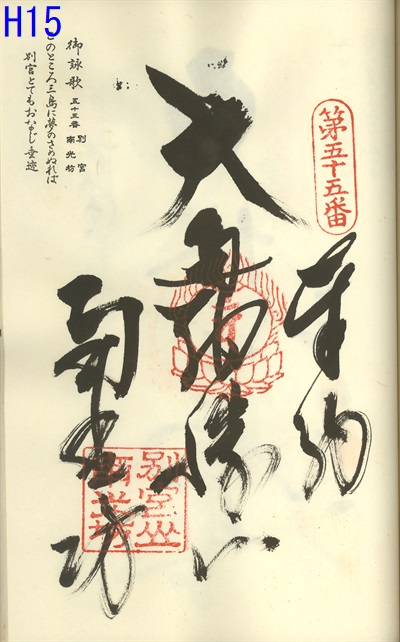 H15
第五十五番
奉納
大通智勝仏
南光坊
別宮山
南光坊
御詠歌 五十五番 別宮 南光坊
このところ三島に夢のさめぬれば
別宮とてもおなじ垂迹